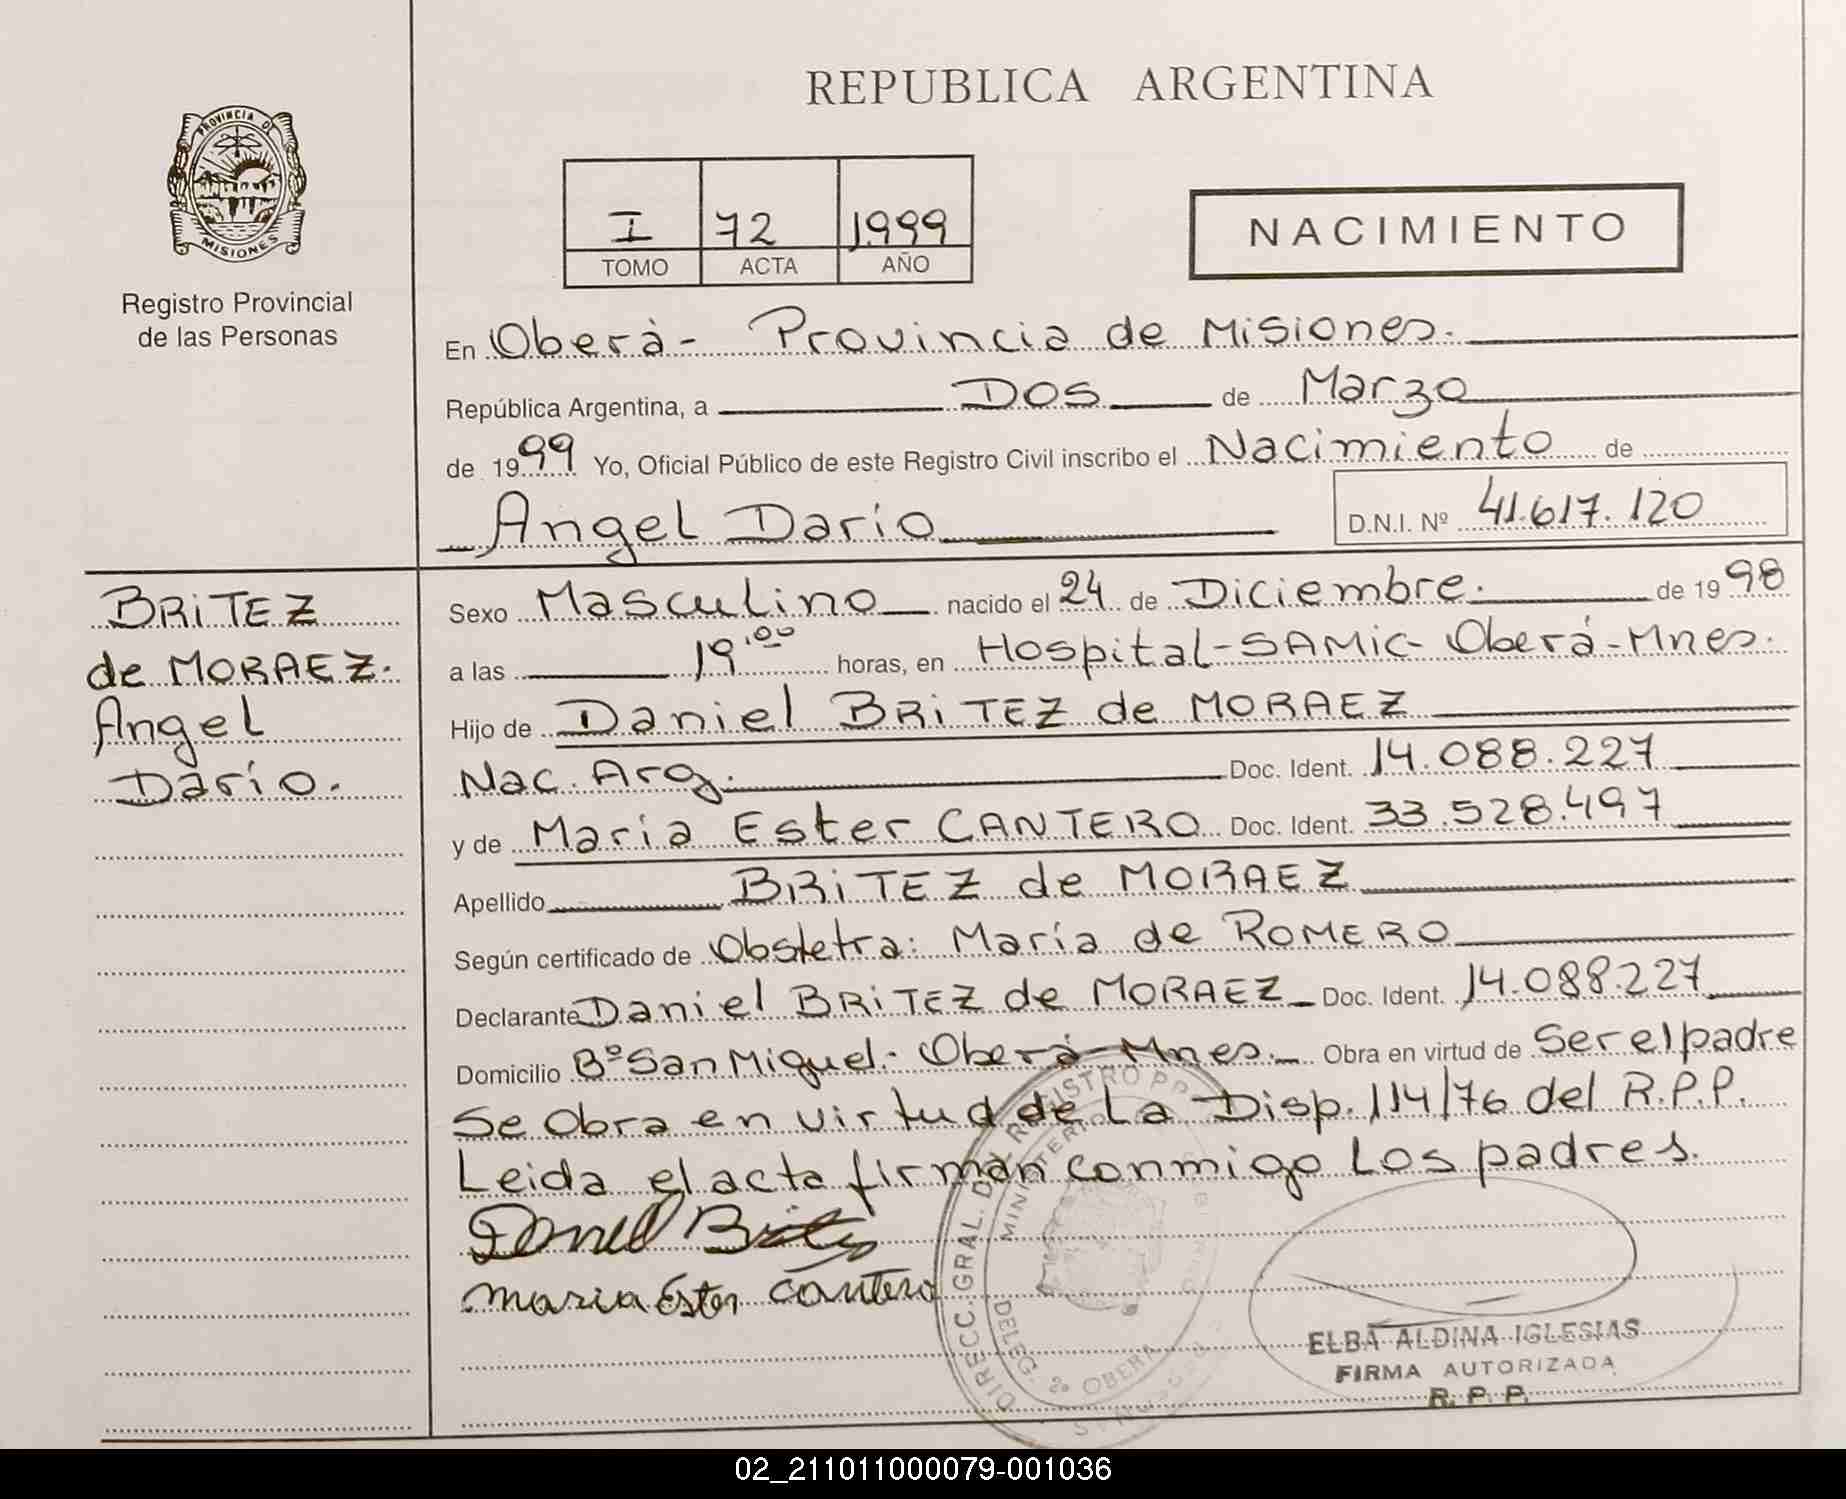 REPUBLICA ARGENTINA
PROVINCIA D
MISIONES
Registro Provincial
de las Personas
I 72 1999
TOMO ACTA AÑO
NACIMIENTO
En Oberá- Provincia de Misiones.
República Argentina, a DOS de Marzo
de 1999 Yo, Oficial Público de este Registro Civil inscribo el Nacimiento de
Angel Dario D.N.I. Nº 41.617.120
BRITEZ
de MORAEZ.
Angel
Darío.
Sexo Masculino nacido el 24 de Diciembre. de 1998
a las 19:00 horas, en Hospital-SAMIC- Oberá-Mnes.
Hijo de Daniel BRITEZ de MORAEZ
Nac. Arg. Doc. Ident. 14.088.227
y de María Ester CANTERO Doc. Ident. 33.528.497
Apellido BRITEZ de MORAEZ
Según certificado de Obstetra: María de ROMERO
Declarante Daniel BRITEZ de MORAEZ Doc. Ident. 14.088.227
Domicilio Bº San Miguel. Oberá-Mnes. Obra en virtud de Ser el padre
Se Obra en virtud de La Disp. 114/76 del R.P.P.
Leida el acta firman conmigo Los padres.
Daniel Britez
Maria Ester Cantero
DIRECC. GRAL. DEL REGISTRO
MINISTERIO
DELEG. 2º OBERA
ELBA ALDINA IGLESIAS
FIRMA AUTORIZADA
R. P. P.
02_211011000079-001036